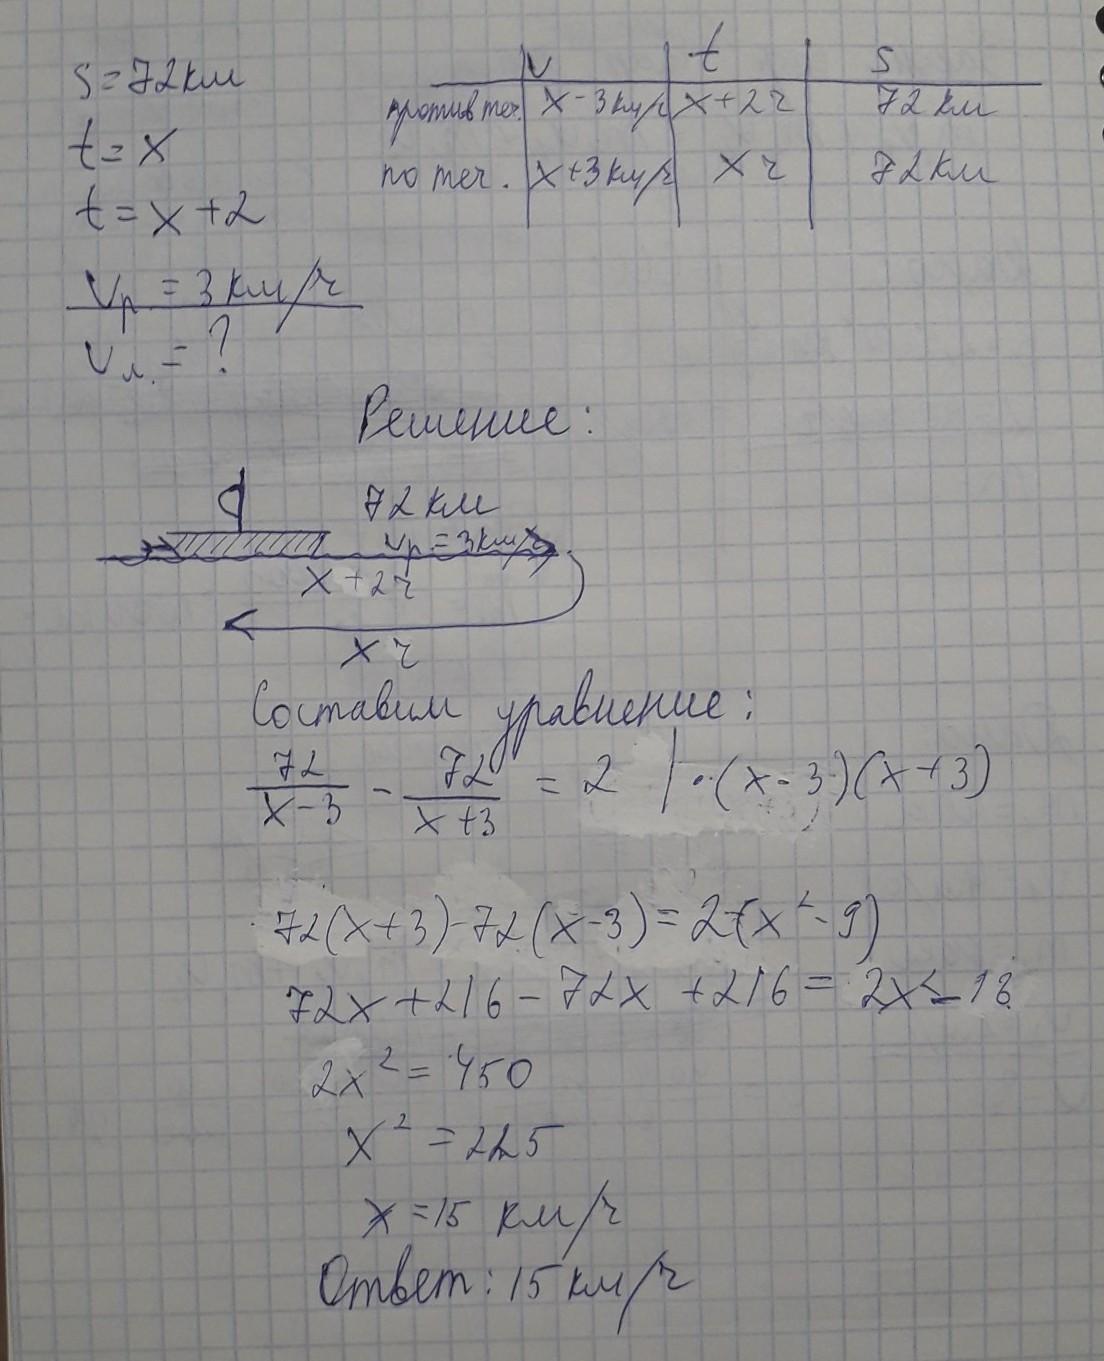 s=72км
t=x
t=x+2
vр = 3 км/ч
vл. = ?
v t s
против теч. x-3км/ч x+2ч 72 км
по теч. x+3км/ч x ч 72км
Решение:
72 км
vр = 3км/ч
x+2ч
x ч
Составим уравнение:
72/(x-3) - 72/(x+3) = 2 |·(x-3)(x+3)
72(x+3)-72(x-3)=2(x²-9)
72x+216-72x+216=2x²-18
2x²=450
x²=225
x=15 км/ч
Ответ: 15 км/ч